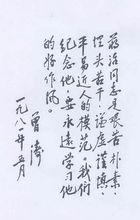 蒋治同志是艰苦朴素、
埋头苦干、谦虚谨慎、
平易近人的模范。我们
纪念他，要永远学习他
的好作风。
曾涛
一九八一年五月